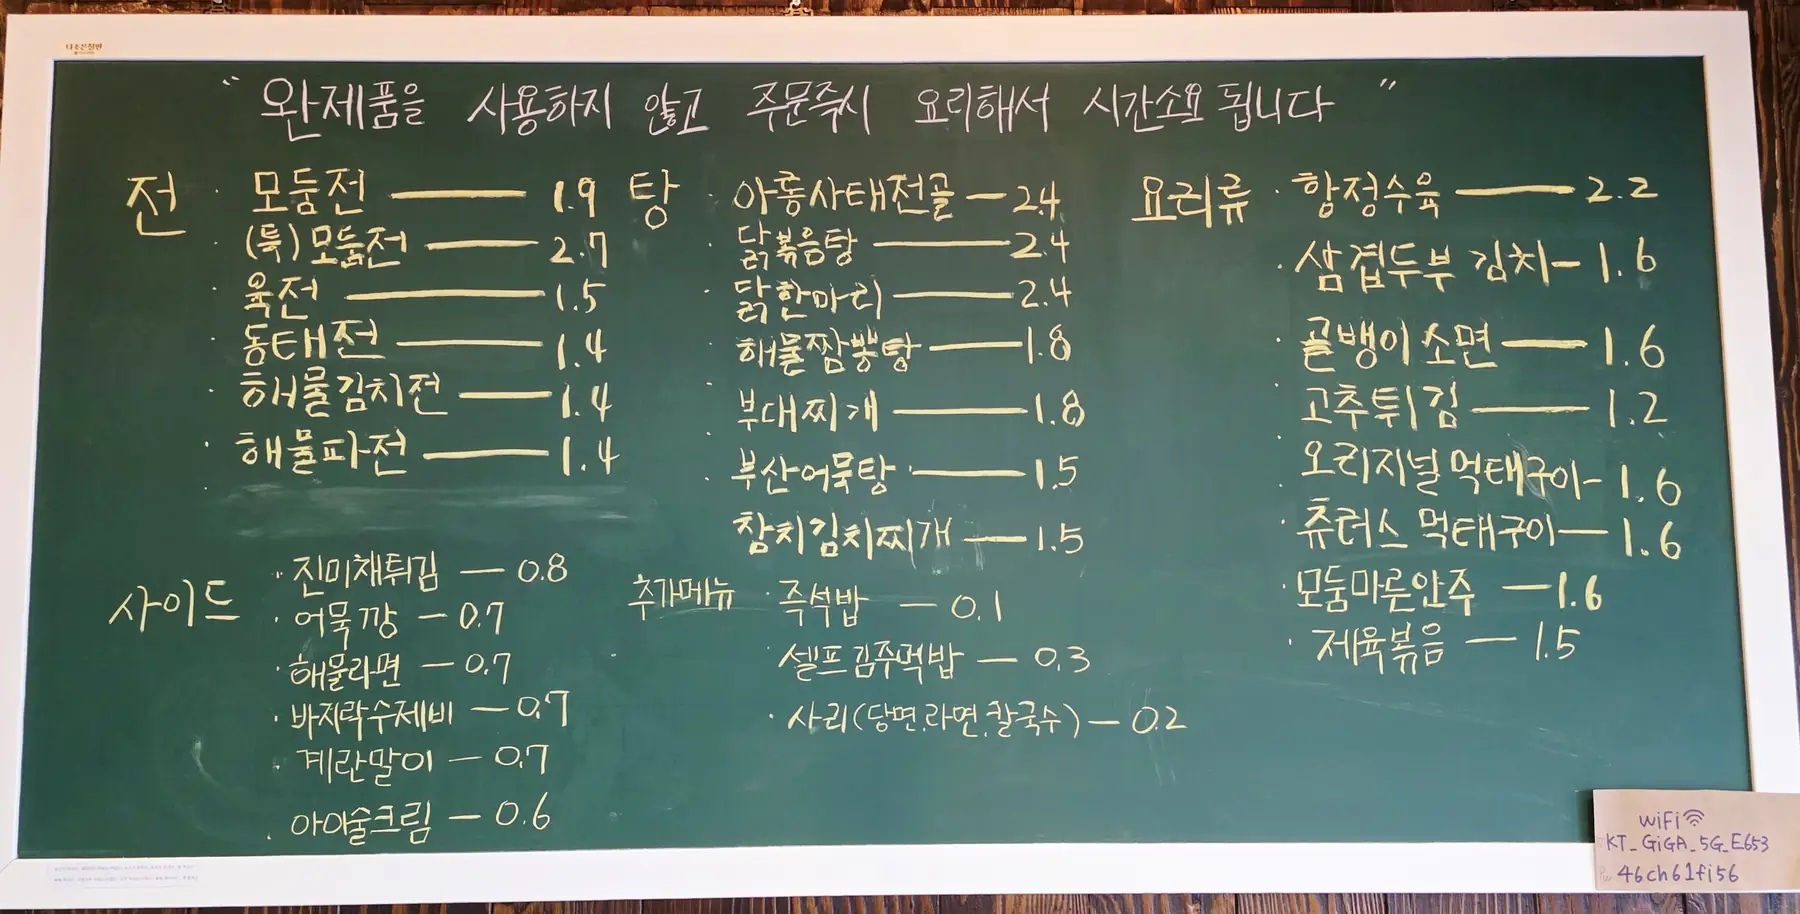 다조은칠판
" 완제품을 사용하지 않고 주문즉시 요리해서 시간소요 됩니다 "
전
· 모둠전 — 1.9
· (특) 모둠전 — 2.7
· 육전 — 1.5
· 동태전 — 1.4
· 해물김치전 — 1.4
· 해물파전 — 1.4
탕
· 아롱사태전골 — 2.4
· 닭볶음탕 — 2.4
· 닭한마리 — 2.4
· 해물짬뽕탕 — 1.8
· 부대찌개 — 1.8
· 부산어묵탕 — 1.5
참치김치찌개 — 1.5
요리류
· 항정수육 — 2.2
· 삼겹두부 김치 — 1.6
· 골뱅이 소면 — 1.6
· 고추튀김 — 1.2
· 오리지널 먹태구이 — 1.6
· 츄러스 먹태구이 — 1.6
· 모둠마른안주 — 1.6
· 제육볶음 — 1.5
사이드
· 진미채튀김 — 0.8
· 어묵깡 — 0.7
· 해물라면 — 0.7
· 바지락수제비 — 0.7
· 계란말이 — 0.7
· 아이술크림 — 0.6
추가메뉴
· 즉석밥 — 0.1
· 셀프김주먹밥 — 0.3
· 사리(당면.라면.칼국수) — 0.2
WiFi
KT_GiGA_5G_E653
Pw 46ch61fi56